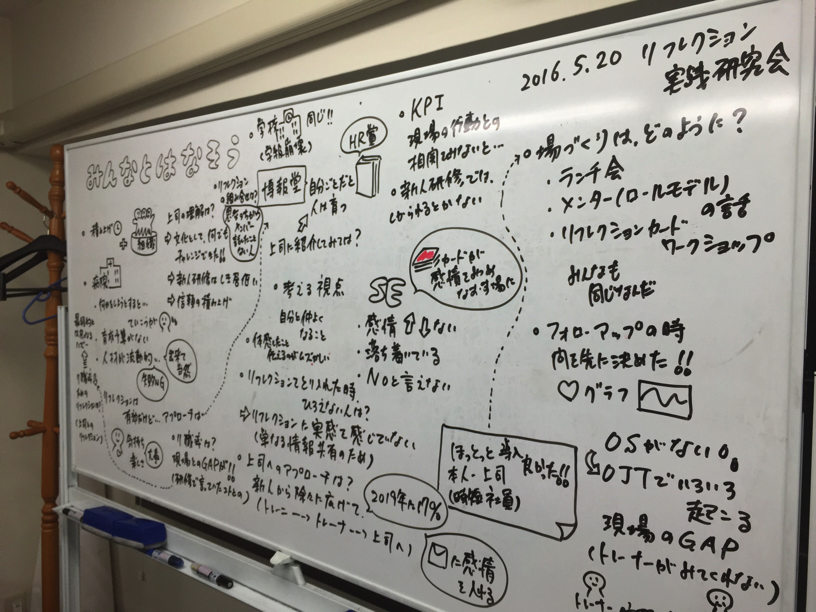 2016.5.20 リフレクション
実践研究会
みんなとはなそう
・学校 同じ!!
(学級崩壊)
HR営
・リフレクション
博報堂
自分ごとだと
人は育つ
上司に紹介してみては?
・積み上げ
組織
上司の理解は?
⇨文化として、何でも
チャレンジできた!!
⇨新人研修は
⇨信頼の積み上げ
・病院
・何かしようとすると…
・育成予算がない
・人材が流動的…
リフレクションは
アプローチは
気持ち
・リ職場は?
現場とのGAPが!!
・考える視点
自分と仲よく
なること
・体感したこと
伝えるのがむずかしい
・リフレクションをとり入れた時
ひろえない人は?
⇨リフレクションに実感を感じていない
(単なる情報共有のため)
・上司へのアプローチは?
新人から徐々に広げて、
(トレーニー→トレーナー→上司へ)
2019年に17%
に感情
を入れる
・KPI
現場の行動との
相関をみないと…
・新人研修では、
しかられるとかない
SE
カードが
感情をみつめ
なおす場に
・感情 ない
・落ち着いている
・Noと言えない
ほっとっと導入
本人・上司 良かった!!
(時短社員)
・場づくりは、どのように?
・ランチ会
・メンター(ロールモデル)
の話
・リフレクションカード
ワークショップ
みんなも
同じなんだ
・フォローアップの時
問を先に決めた!!
グラフ
OSがない。
OJTでいろいろ
起こる
現場のGAP
(トレーナーがみてくれない)
トレーナー